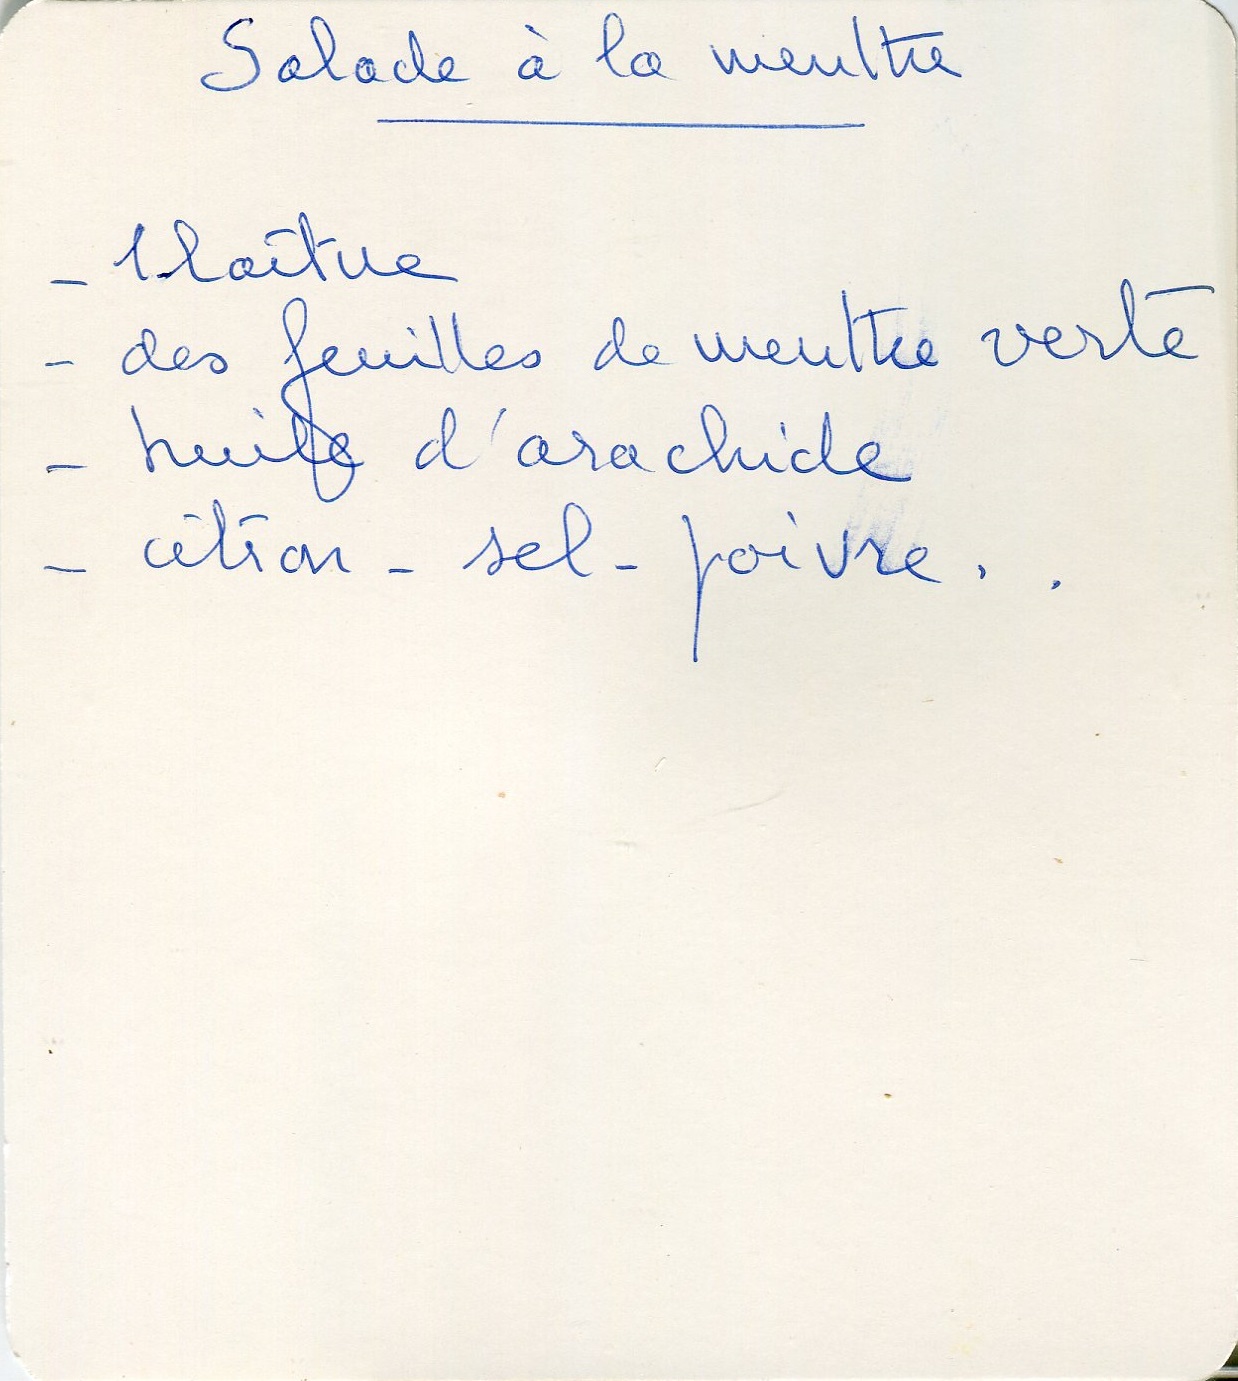 Salade à la menthe
- 1 laitue
- des feuilles de menthe verte
- huile d'arachide
- citron - sel - poivre . .